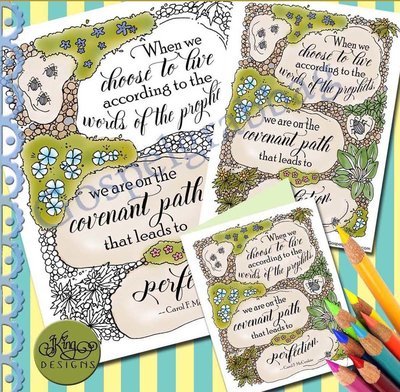 When we
choose to live
according to the
words of the prophets
we are on the
covenant path
that leads to
perfection
--Carol F. M
When we
choose to live
according to the
words of the prophets,
we are on the
covenant path
that leads to
When we
choose to live
according to the
words of the prophets,
we are on the
covenant path
that leads to
perfection
--Carol F. McConkie
JKing
DESIGNS